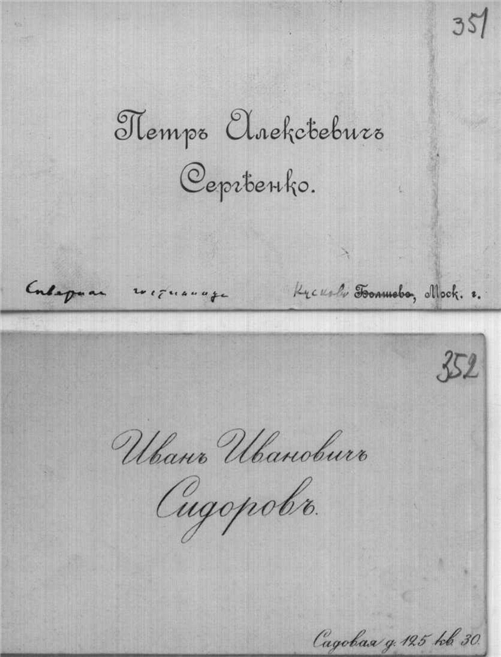 351
Петръ Алексѣевичъ
Сергѣенко.
Сѣверная гостиница Кусково Болшево, Моск. г.
352
Иванъ Ивановичъ
Сидоровъ.
Садовая д. 125 кв 30.